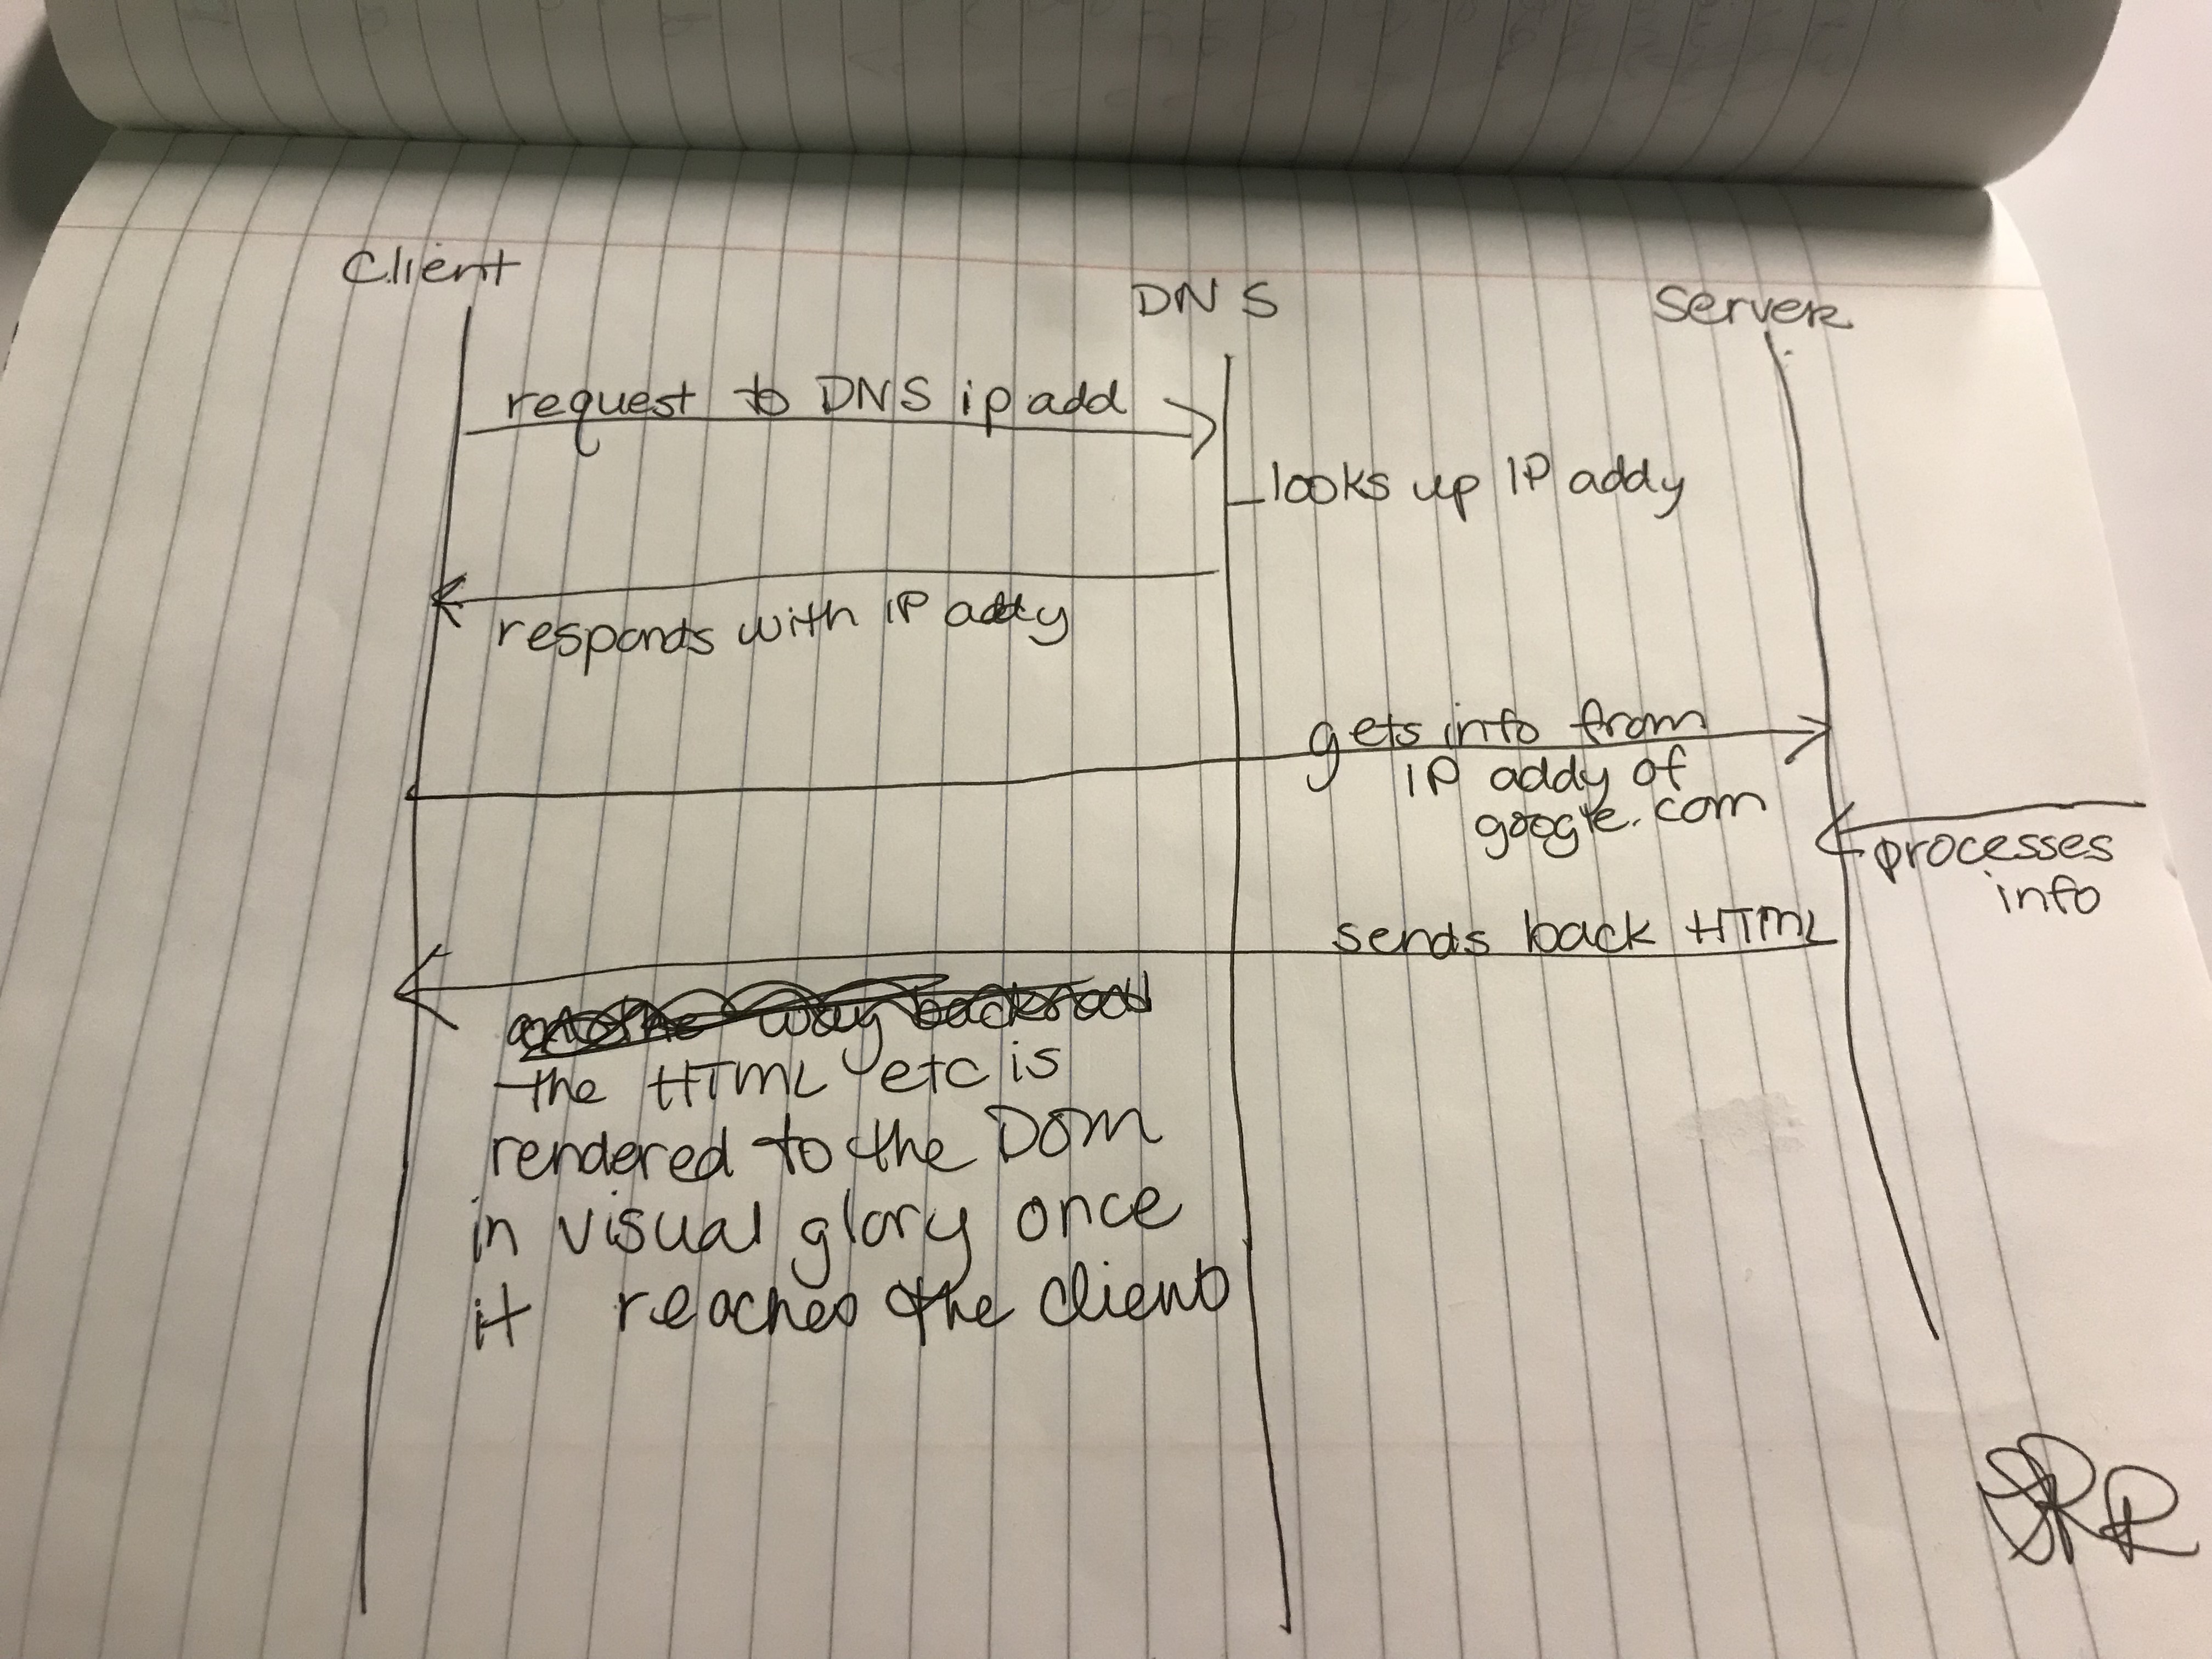 Client
DNS
Server
request to DNS ip add
looks up IP addy
responds with IP addy
gets info from
IP addy of
google.com
processes
info
sends back HTML
way
the HTML etc is
rendered to the DOM
in visual glory once
it reaches the client